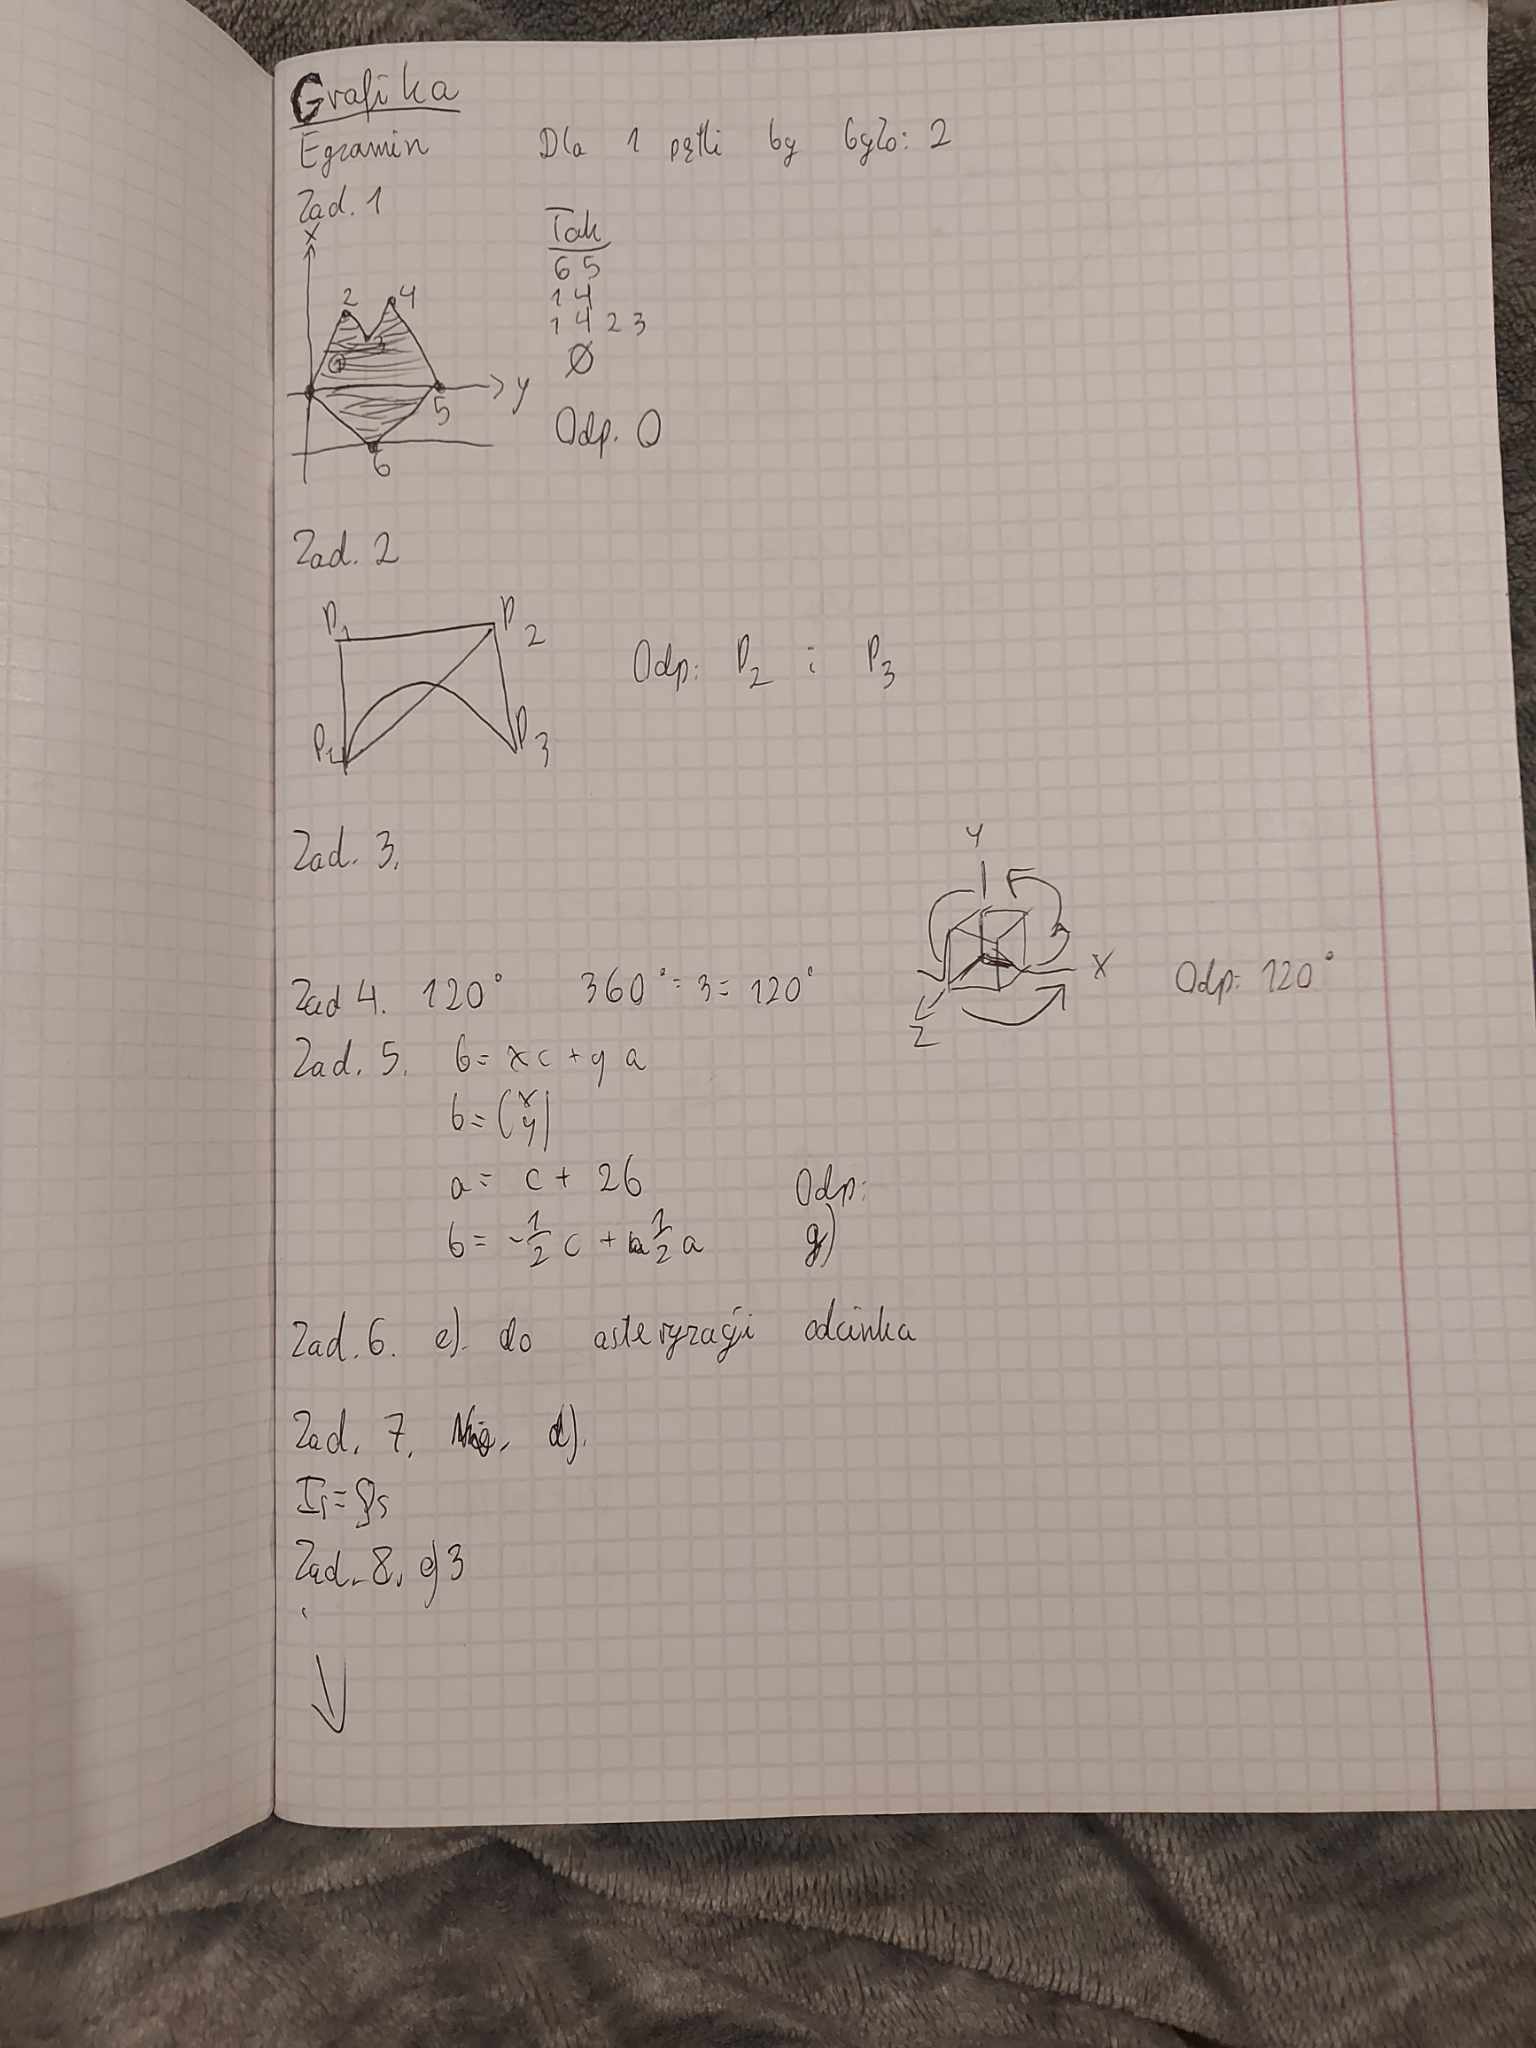 Grafika
Egzamin
Dla 1 pętli by było: 2
Zad. 1
x
2
4
3
1
y
5
6
Tak
6 5
1 4
1 4 2 3
Ø
Odp. 0
Zad. 2
P1
P2
P3
Odp: P2 i P3
Zad. 3.
Y
X
Z
Odp: 120°
Zad 4. 120° 360° : 3 = 120°
Zad. 5. b = xc + ya
b = (x
y)
a = c + 2b
b = -1/2 c + 1/2 a
Odp:
g)
Zad. 6. e). do asteryzacji odcinka
Zad. 7. d).
Zad. 8. e) 3